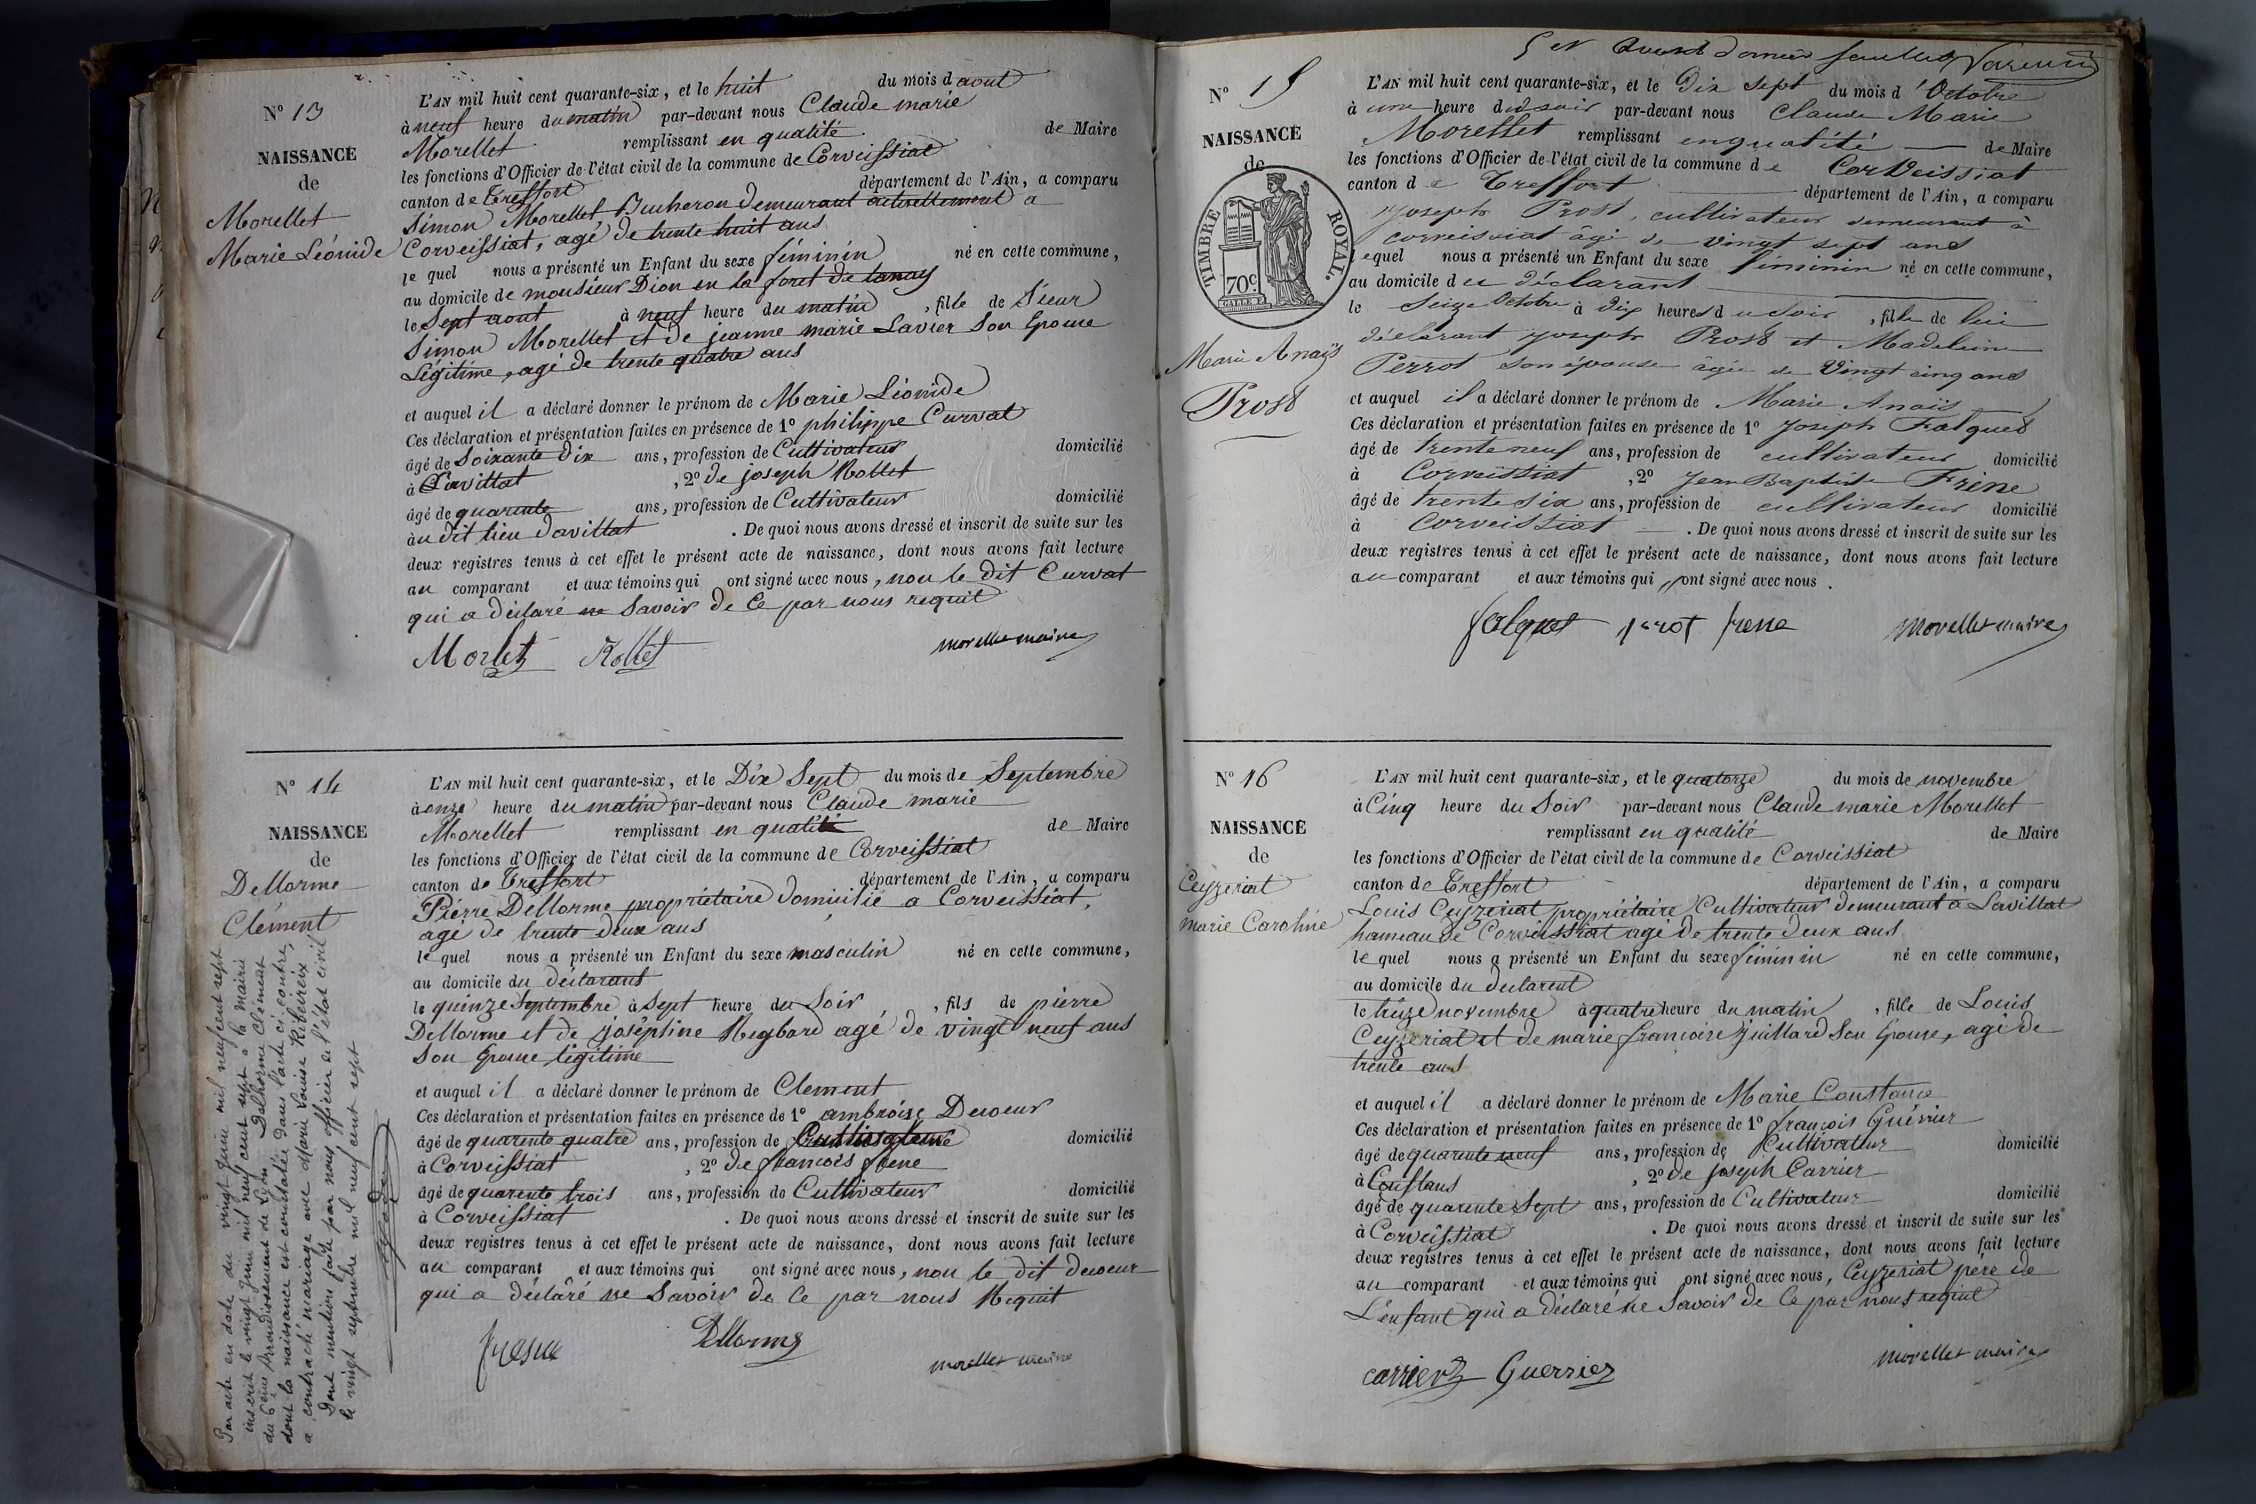 N° 13
NAISSANCE
de
Morellet
Marie Léonide
L'AN mil huit cent quarante-six, et le huit du mois d'aout
à neuf heure du matin par-devant nous Claude marie
Morellet remplissant en qualité de Maire
les fonctions d'Officier de l'état civil de la commune de Corveissiat
canton de Treffort département de l'Ain, a comparu
Simon Morellet, Bucheron demeurant actuellement a
Corveissiat, agé de trente huit ans
le quel nous a présenté un Enfant du sexe féminin né en cette commune,
au domicile de monsieur Dion en la foret de
le Sept aout à neuf heure du matin, fille de Sieur
Simon Morellet et de jeanne marie Lavier Son Epouse
Légitime, agé de trente quatre ans
et auquel il a déclaré donner le prénom de Marie Léonide
Ces déclaration et présentation faites en présence de 1° philippe Curvat
âgé de Soixante Dix ans, profession de Cultivateur domicilié
à Lavillat, 2° de joseph Rollet
âgé de quarente ans, profession de Cultivateur domicilié
au dit lieu Davillat. De quoi nous avons dressé et inscrit de suite sur les
deux registres tenus à cet effet le présent acte de naissance, dont nous avons fait lecture
au comparant et aux témoins qui ont signé avec nous, non le dit Curvat
qui a déclaré ne Savoir de Ce par nous requit
Morlet Rollet morellet maire
N° 14
NAISSANCE
de
Dellorme
Clément
L'AN mil huit cent quarante-six, et le Dix Sept du mois de Septembre
à onze heure du matin par-devant nous Claude marie
Morellet remplissant en qualité de Maire
les fonctions d'Officier de l'état civil de la commune de Corveissiat
canton de Treffort département de l'Ain, a comparu
Pierre Dellorme propriétaire Domicilié a Corveissiat,
agé de trente deux ans
le quel nous a présenté un Enfant du sexe masculin né en cette commune,
au domicile du déclarant
le quinze Septembre à Sept heure du Soir, fils de pierre
Dellorme et de joséphine agé de vingt neuf ans
Son Epouse légitime
et auquel il a déclaré donner le prénom de Clement
Ces déclaration et présentation faites en présence de 1° ambroise Decoeur
âgé de quarente quatre ans, profession de Cultivateur domicilié
à Corveissiat, 2° de francois frene
âgé de quarente trois ans, profession de Cultivateur domicilié
à Corveissiat. De quoi nous avons dressé et inscrit de suite sur les
deux registres tenus à cet effet le présent acte de naissance, dont nous avons fait lecture
au comparant et aux témoins qui ont signé avec nous, non le dit decoeur
qui a déclaré ne Savoir de Ce par nous Requit
Dellorme morellet maire
Par acte en date du vingt juin mil neuf cent sept
inscrit le vingt juin mil neuf cent sept à la mairie
du 6ème Arrondissement de Lyon Delhorme Clément
dont la naissance est constatée dans l'acte ci-contre,
a contracté mariage avec Marie Louise
Dont mention faite par nous officier de l'état civil
le vingt septembre mil neuf cent sept
N° 15
NAISSANCE
de
TIMBRE ROYAL.
70c
Marie Anaïs
Prost
L'AN mil huit cent quarante-six, et le Dix sept du mois d'Octobre
à une heure du soir par-devant nous Claude Marie
Morellet remplissant en qualité de Maire
les fonctions d'Officier de l'état civil de la commune de Corveissiat
canton de Treffort département de l'Ain, a comparu
Joseph Prost, cultivateur demeurant à
corveissiat âgé de vingt sept ans
lequel nous a présenté un Enfant du sexe féminin né en cette commune,
au domicile du déclarant
le Seize Octobre à dix heures du Soir, fille de lui
déclarant Joseph Prost et Madeleine
Perrot son épouse âgée de Vingt cinq ans
et auquel il a déclaré donner le prénom de Marie Anaïs
Ces déclaration et présentation faites en présence de 1° Joseph Falquet
âgé de trente neuf ans, profession de cultivateur domicilié
à Corveissiat, 2° Jean Baptiste Frène
âgé de trente six ans, profession de cultivateur domicilié
à Corveissiat. De quoi nous avons dressé et inscrit de suite sur les
deux registres tenus à cet effet le présent acte de naissance, dont nous avons fait lecture
au comparant et aux témoins qui ont signé avec nous.
falquet prot frene morellet maire
N° 16
NAISSANCE
de
Ceyzeriat
marie Caroline
L'AN mil huit cent quarante-six, et le quatorze du mois de novembre
à Cinq heure du Soir par-devant nous Claude marie Morellet
remplissant en qualité de Maire
les fonctions d'Officier de l'état civil de la commune de Corveissiat
canton de Treffort département de l'Ain, a comparu
Louis Ceyzeriat propriétaire Cultivateur demeurant a Lavillat
hameau de Corveissiat agé de trente deux ans
le quel nous a présenté un Enfant du sexe féminin né en cette commune,
au domicile du declarent
le treize novembre à quatre heure du matin, fille de Louis
Ceyzeriat et de marie francoise juillard Son Epouse, agé de
trente ans
et auquel il a déclaré donner le prénom de Marie Constance
Ces déclaration et présentation faites en présence de 1° françois Guérrier
âgé de quarente neuf ans, profession de Cultivateur domicilié
à Conflans, 2° de joseph Carrier
âgé de quarente Sept ans, profession de Cultivateur domicilié
à Corveissiat. De quoi nous avons dressé et inscrit de suite sur les
deux registres tenus à cet effet le présent acte de naissance, dont nous avons fait lecture
au comparant et aux témoins qui ont signé avec nous, Ceyzeriat père de
L'enfant qui a déclaré ne Savoir de Ce par nous requit
carrier Guerrier morellet maire